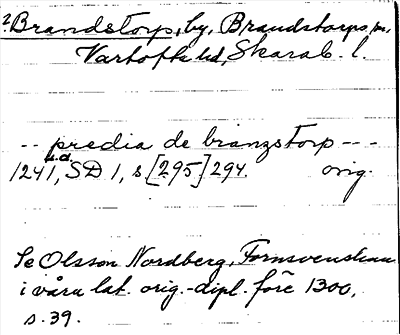 2. Brandstorp, by, Brandstorps sn,
Vartofta hd, Skarab. l.
-- predia de branzstorp ---
u.d.
1241, SD 1, s [295] 294. orig.
Se Olsson Nordberg, Fornsvenskan
i våra lat. orig.-dipl. före 1300,
s. 39.